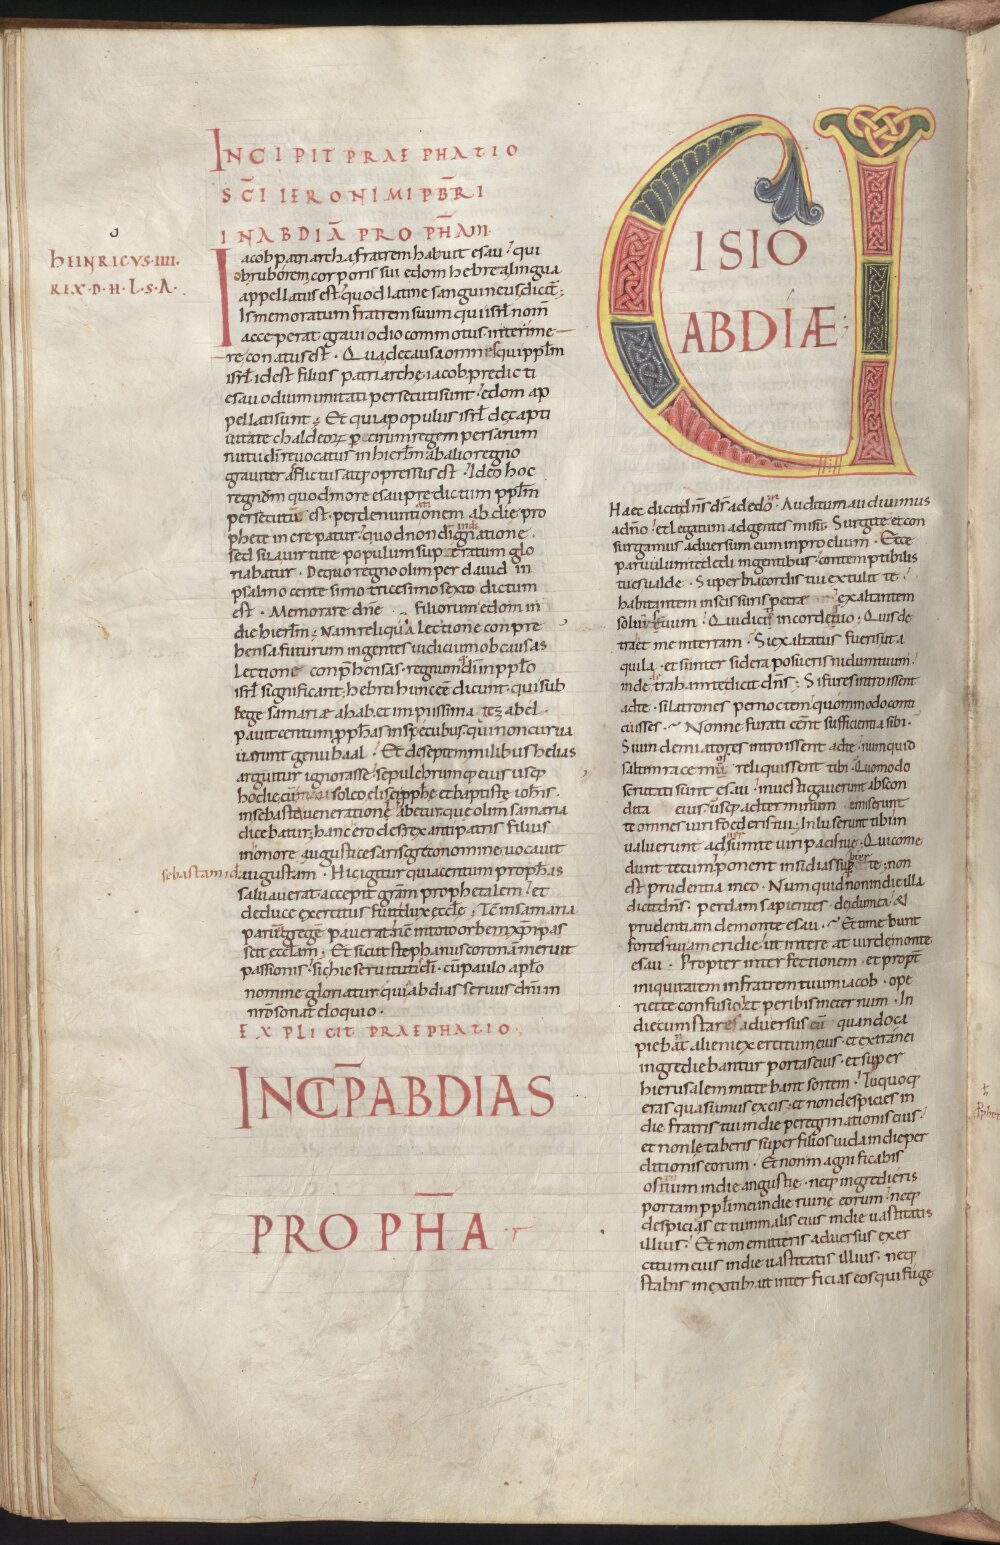 INCIPIT PRAEPHATIO
SC̄I IERONIMI PB̄RI
IN ABDIĀ PROPHĀM.
HEINRICVS·IIII·
REX·D·H·L·S·A·
Iacob patriarcha fratrem habuit esau· qui
ob ruborem corporis sui edom hebrea lingua
appellatus est· quod latine sanguineus dicit̄;
Is memoratum fratrem suum qui isrl̄ nom̄
acceperat gravi odio commotus· interime
re conatus est· Qua de causa omnes qui ppl̄m
isrl̄ id est filius patriarchę iacob predicti
esau odium imitati persecuti sunt· edom ap
pellati sunt; Et quia populus isrl̄ de capti
vitate chaldeoꝝ ꝑ cirum regem persarum
nutu dī revocatus in hierl̄m ab alio regno
graviter afflictus atq; opressus est· Ideo hoc
regnom quod more esau predictum ppl̄m
persecutū est· per denuntiationem abdię pro
phetę increpatur· quod non dī indignatione·
sed sua virtute populum superatum glo
riabatur· De quo regno olim per david in
psalmo centesimo tricesimo sexto dictum
est· Memorare dn̄e filiorum edom in
die hierl̄m; Nam reliqua lectione conpre
hensa futurum in gentes iudicium ob causas
lectione conp̄hensas· regnum dī in pplo
isrl̄ significant; hebrei hunc eē dicunt· qui sub
rege samariæ ahab· et impiissima iezabel·
pavit centum pphas in specubus· qui non curva
varunt genu baal· Et de septim milibus helias
arguitur ignorasse· sepulchrumq; eius usq;
hodie cū mausoleo elisei pphę et baptistę iohīs·
in sebaste venerationę habetur· que olim samaria
dicebatur; hanc ero des rex antipatris filius
in onore augusti cesaris greco nomine vocavit
sebastam id
augustam· Hic igitur quia centum prophas
salvaverat· accepit grām prophetalem· et
de duce exercitus fūit dux ecclę; Tē in samaria
parvū gregē paverat· nc̄ in toto orbe xp̄i pas
scit ecclam; Et sicut stephanus coronā meruit
passionis· sic hic servitutis dī· cū paulo aplo
nomine gloriatur· qui abdias servus dn̄i in
nr̄o sonat eloquio·
EXPLICIT PRAEPHATIO·
INCIP̄ ABDIAS
PROPHĀ
UISIO
ABDIÆ;
Haec dicit dn̄s ds̄ ad edom· Auditum audivimus
a dn̄o· et legatum ad gentes misit· Surgite et con
surgamus adversum eum in proelium· Ecce
parvulum te dedi in gentibus· contemptibilis
tu es valde· Superbia cordis tui extulit te·
habitantem in scissuris petræ exaltantem
solium tuum· Qui dicis in corde tuo· Quis de
trahet me in terram· Si exaltatus fueris ut a
quila· et si inter sidera posueris nidum tuum·
inde detraham te dicit dn̄s; Si fures introissent
ad te· si latrones per noctem· quommodo conti
cuisses·~ Nonne furati eēnt sufficientia sibi·
Si vindemiatores introissent ad te· numquid
saltim racemū reliquissent tibi· Quomodo
scrutati sunt esau· investigaverunt abscon
dita eius· usq; ad terminum emiserunt
te omnes viri foederis tui; Inluserunt tibi in
valuerunt adsumte viri pacis tuę; Qui come
dunt tecum· ponent insidias subter te· non
est prudentia in eo· Numquid non in die illa
dicit dn̄s· perdam sapientes de idumea· &
prudentiam de monte esau·~ Et timebunt
fortes tui a meridie· ut intereat vir de monte
esau· Propter interfectionem· et propt̄
iniquitatem in fratrem tuum iacob· ope
riet te confusio· et peribis in eternum· In
die cum stares adversus eū quando ca
piebant alieni exercitum eius· et extranei
ingrediebantur portas eius· et super
hierusalem mittebant sortem· Tu quoq;
eras quasi unus ex eis· et non despicies in
die fratris tui in die peregrinationis eius·
et non lętaberis super filios iuda in die per
ditionis eorum· Et non magnificabis
os tuum in die angustię· neq; ingredieris
portam ppl̄i mei in die ruinę eorum· neq;
despicias et tu in malis eius in die vastitatis
illius· Et non emitteris adversus exer
citum eius in die vastitatis illius· neq;
stabis in exitib; ut interficias eos qui fuge